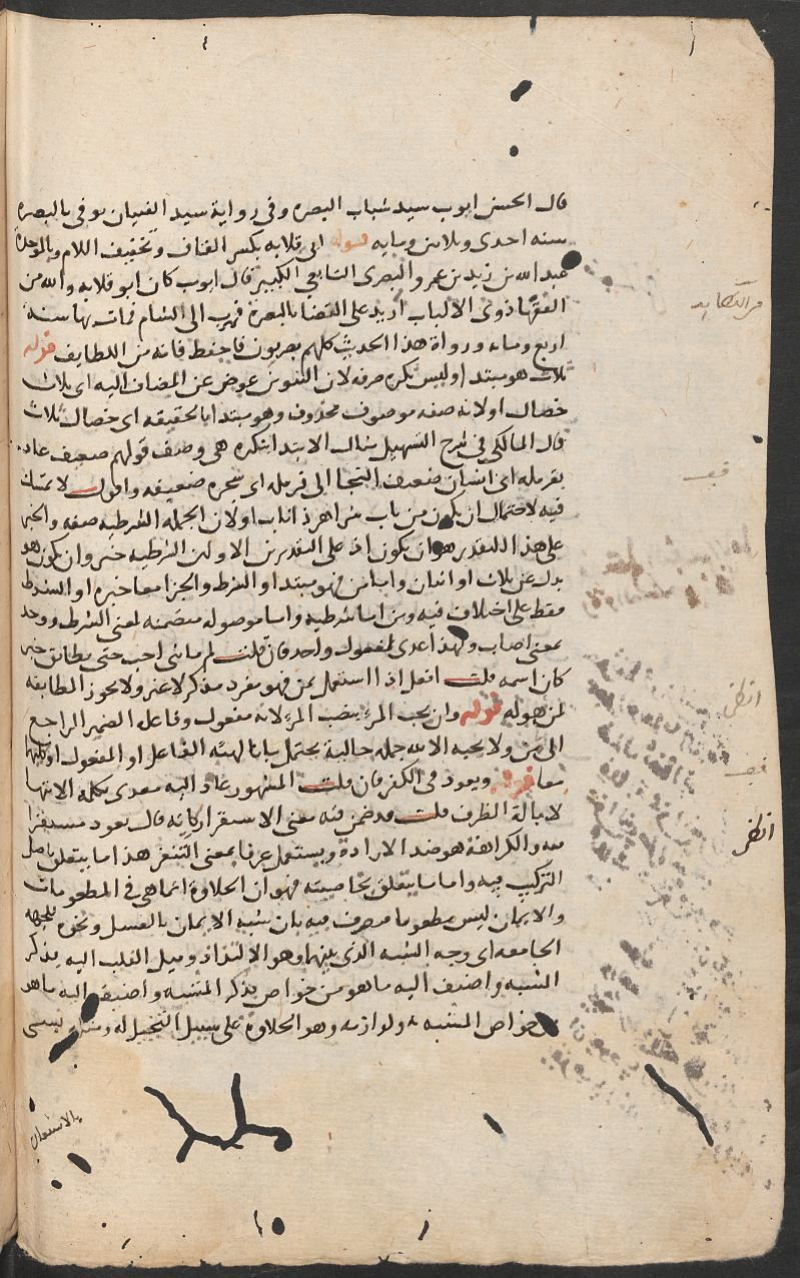 قال الحسن ايوب سيد شباب البصره وفى رواية سيد الفتيان توفى بالبصره
سنه احدى وثلاثين ومايه قوله ابى قلابه بكسر القاف وتخفيف اللام وبالموحدة
عبد الله بن زيد بن عمرو البصرى التابعى الكبير قال ايوب كان ابو قلابه والله من
الفقها ذوى الالباب أريد على القضا بالبصرة فهرب الى الشام فمات بها سنة
اربع وماء ورواة هذا الحديث كلهم بصريون فاحفظ فانه من اللطايف قوله
ثلاث هو مبتدا وليس نكره صرفه لان التنوين عوض عن المضاف اليه اى ثلاث
خصال او لانه صفه موصوف محذوف وهو مبتدا بالحقيقه اى خصال ثلاث
قال المالكى فى شرح التسهيل مثال الابتدا بنكره هى وصف قولهم ضعيف عاد
بقرمله اى انسان ضعيف التجا الى قرمله اى شجره ضعيفه واقول لا تمسك
فيه لاحتمال ان يكون من باب شر اهر ذا ناب او لان الجمله الشرطيه صفه والخبر
على هذا التقدير هو ان يكون اذ على التقديرين الاولين الشرطيه خبر وان يكون هو
بدل عن ثلاث او بيان واما من فهو مبتدا والشرط والجزا معا خبره او الشرط
فقط على اختلاف فيه ومن اما شرطيه واما موصوله متضمنه لمعنى الشرط ووجد
بمعنى اصاب ولهذا عدى لمفعول واحد فان قلت لم ما ثنى احب حتى يطابق خبر
كان اسمه قلت افعل اذا استعمل بمن فهو مفرد مذكر لا غير ولا يجوز المطابقه
لمن هو له قوله وان يحب المرء بنصب المرء لانه مفعول وفاعله الضمير الراجع
الى من ولا يحبه الا لله جمله حالية يحتمل بيانا لهيئه الفاعل او المفعول او كليهما
معا قوله ويعود فى الكفر فان قلت المشهور عاد اليه معدى بكلمه الانتها
لا بآلة الظرف قلت قد ضمن فيه معنى الاستقرار كانه قال يعود مستقرا
فيه والكراهة هو ضد الارادة ويستعمل عرفا بمعنى التنفر هذا ما يتعلق باصل
التركيب فيه واما ما يتعلق بخاصيته فهو ان الحلاوة انما هى فى المطعومات
والايمان ليس مطعوما فصرف فيه بان شبه الايمان بالعسل ونحوه للجهه
الجامعه اى وجه الشبه الذى بينهما وهو الالتذاذ وميل القلب اليه فذكر
الشبه واضيف اليه ما هو من خواص فذكر المشبه واضيف اليه ما هو
من خواص المشبه به ولوازمه وهو الحلاوة على سبيل التخييل له ويسمى
بالاستعارة
قف
انظر
قف
انظر